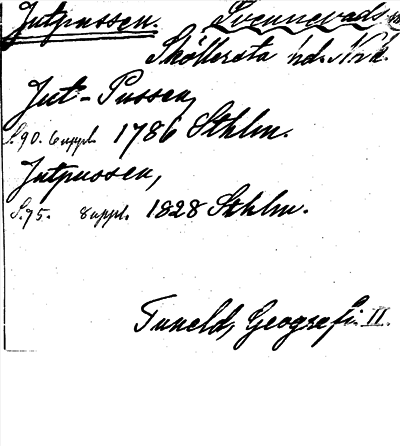 Jutpussen. Svennevads
Sköllersta hd. Nrk.
Jut-Pussen,
S.90. 6 uppl. 1786 Sthlm.
Jutpussen,
S.75. 8 uppl. 1828 Sthlm.
Tuneld, Geografi. II.